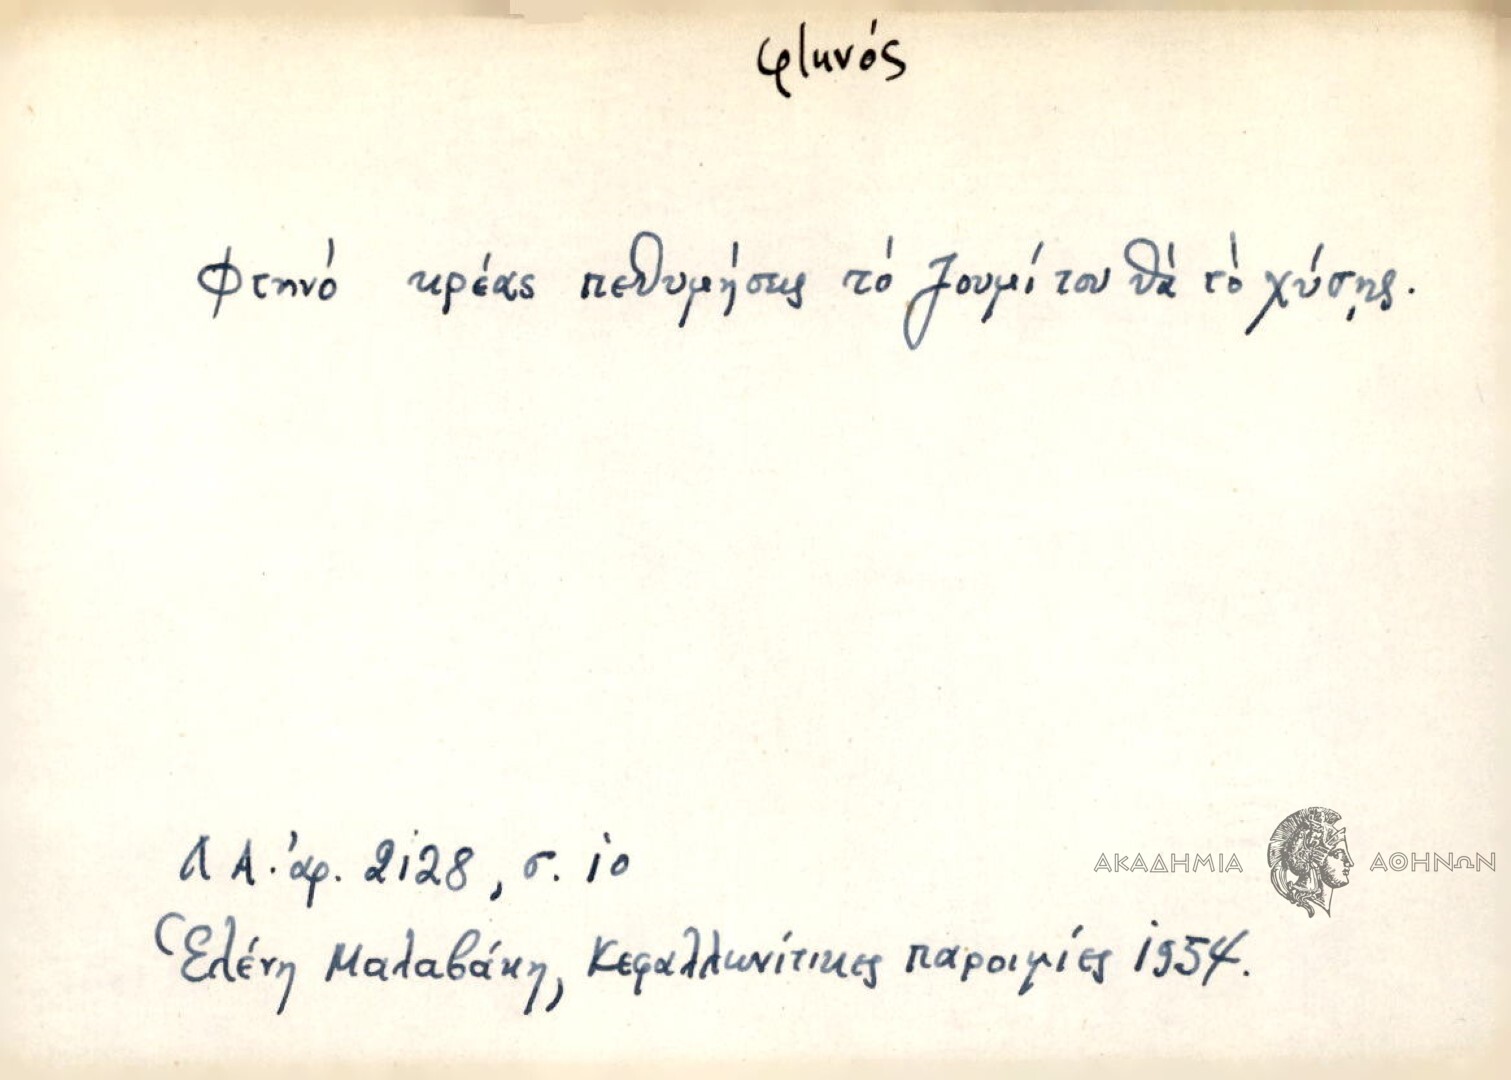 φτηνός
Φτηνό κρέας πεθυμήσεις τό ζουμί του θά τὸ χύσῃς.
Λ Α. ἀρ. 2128, σ. 10
Ἑλένη Μαλαβάκη, Κεφαλλωνίτικες παροιμίες 1954.
ΑΚΑΔΗΜΙΑ ΑΘΗΝΩΝ